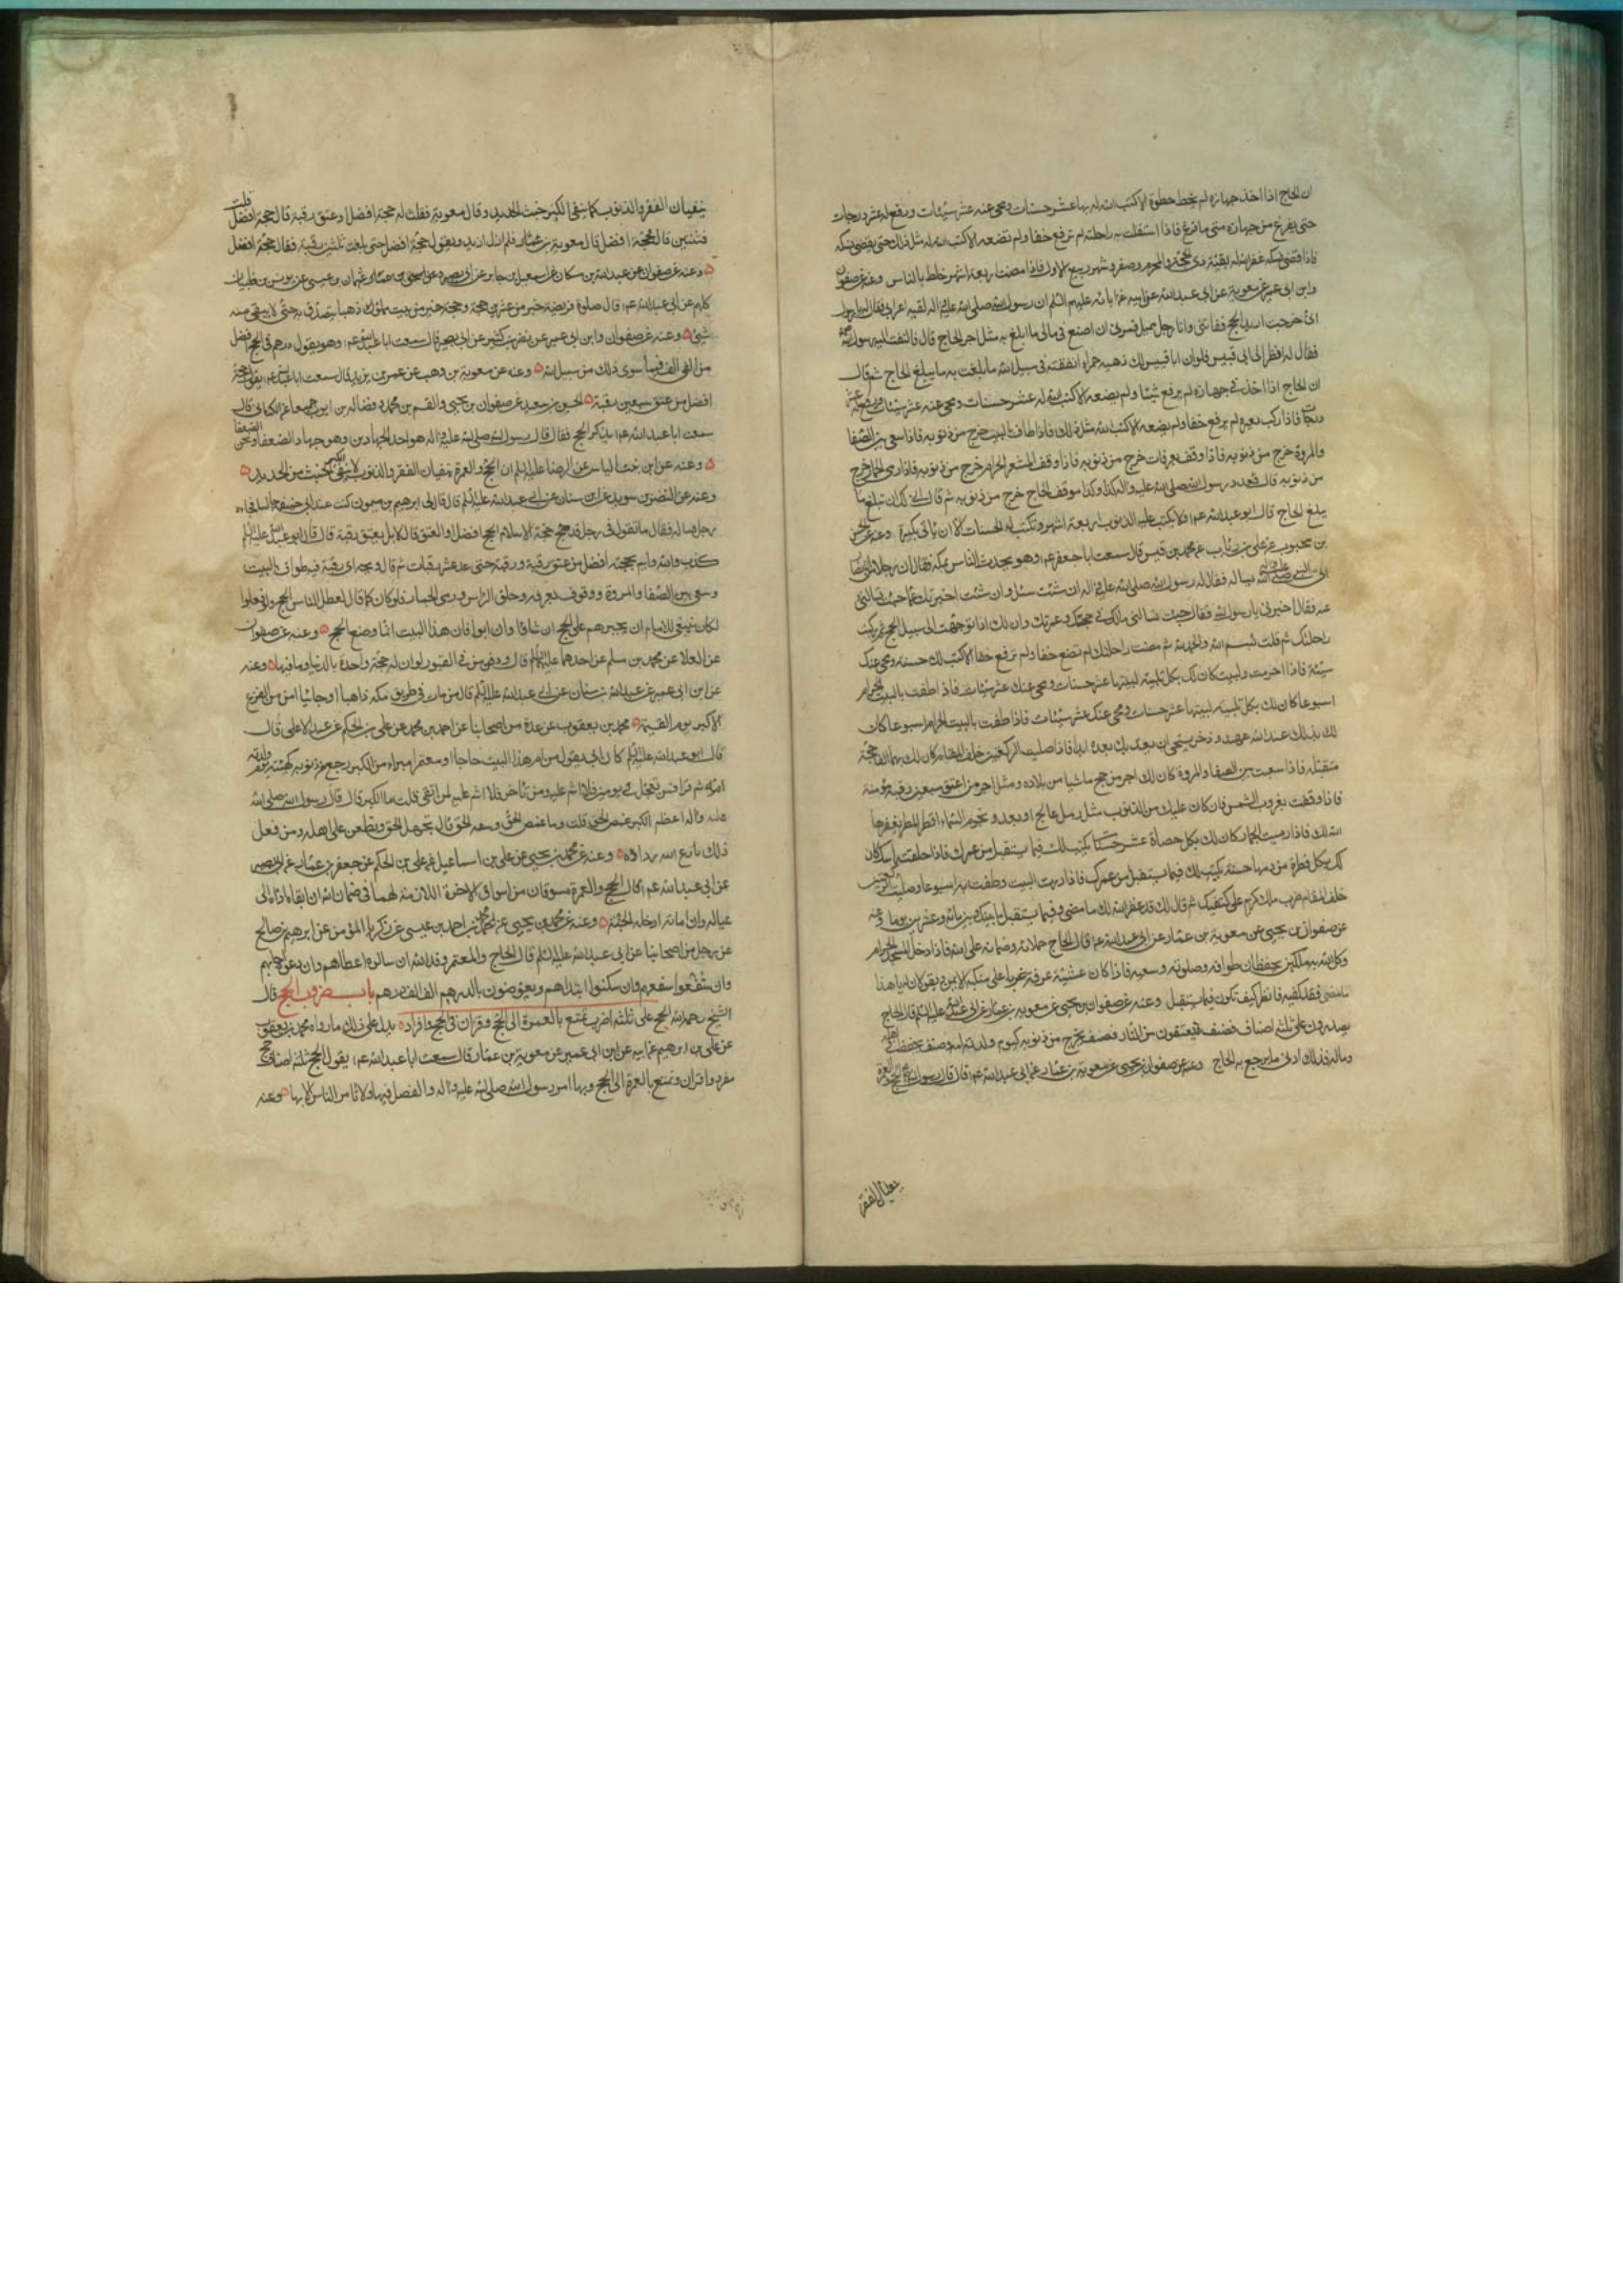 ان الحاج اذا اخذ جهازه لم يخط خطوة الا كتب الله له بها عشر حسنات ومحى عنه عشر سيئات ورفع له عشر درجات
حتى يفرغ من جهازه متى ما فرغ فاذا استقلت به راحلته لم ترفع خفا ولم تضعه الا كتب الله له مثل ذلك حتى يقضي نسكه
فاذا قضى نسكه غفر الله له بقية ذي الحجة والمحرم وصفر وشهر ربيع الاول فاذا مضت اربعة اشهر خلط بالناس وعنه عن صفوان
وابن ابي عمير عن معوية عن ابي عبد الله عن ابيه عن ابائه عليهم السلم ان رسول الله صلى الله عليه واله لقيه اعرابي فقال له يا رسول
اني خرجت اريد الحج ففاتني وانا رجل مميل فمرني ان اصنع في مالي ما ابلغ به مثل اجر الحاج قال فالتفت اليه رسول الله
فقال له انظر الى ابي قبيس فلو ان ابا قبيس لك ذهبة حمراء انفقته في سبيل الله ما بلغت به ما يبلغ الحاج ثم قال
ان الحاج اذا اخذ في جهازه لم يرفع شيئا ولم يضعه الا كتب الله له عشر حسنات ومحى عنه عشر سيئات ورفع له عشر
درجات فاذا ركب بعيره لم يرفع خفا ولم يضعه الا كتب الله مثل ذلك فاذا طاف بالبيت خرج من ذنوبه فاذا سعى بين الصفا
والمروة خرج من ذنوبه فاذا وقف بعرفات خرج من ذنوبه فاذا وقف المشعر الحرام خرج من ذنوبه فاذا رمى الجمار خرج
من ذنوبه قال فعدد رسول الله صلى الله عليه واله كذا وكذا موقف الحاج خرج من ذنوبه ثم قال اني لك ان تبلغ ما
يبلغ الحاج قال ابو عبد الله عم فلا يكتب عليه الذنوب اربعة اشهر وتكتب له الحسنات الا ان ياتي بكبيرة وعنه عن الحسن
بن محبوب عن علي بن رئاب عن محمد بن قيس قال سمعت ابا جعفر عم وهو يحدث الناس بمكة فقال ان رجلا من الانصار
الى النبي صلى الله عليه واله يساله فقال له رسول الله صلى الله عليه واله ان شئت سئل وان شئت اخبرتك عما جئت تسالني
عنه فقال اخبرني يا رسول الله فقال جئت تسالني مالك في حجتك وعمرتك وان لك اذا توجهت الى سبيل الحج ثم ركبت
راحلتك ثم قلت بسم الله والحمد لله ثم مضت راحلتك لم تضع خفا ولم ترفع خفا الا كتب لك حسنة ومحى عنك
سيئة فاذا احرمت ولبيت كان لك بكل تلبية لبيتها عشر حسنات ومحى عنك عشر سيئات فاذا طفت بالبيت الحرام
اسبوعا كان لك بكل تلبية لبيتها عشر حسنات ومحى عنك عشر سيئات فاذا طفت بالبيت الحرام اسبوعا كان
لك بذلك عند الله عهد وذخر يستحي ان يعذبك بعده ابدا فاذا صليت الركعتين خلف المقام كان لك بهما الفا حجة
متقبلة فاذا سعيت بين الصفا والمروة كان لك اجر من حج ماشيا من بلاده ومثل اجر من اعتق سبعين رقبة مؤمنة
فاذا وقفت بغروب الشمس فان كان عليك من الذنوب مثل رمل عالج او بعدد نجوم السماء او قطر المطر يغفرها
الله لك فاذا رميت الجمار كان لك بكل حصاة عشر حسنات يكتب لك فيما يستقبل من عمرك فاذا حلقت راسك كان
لك بكل قطرة من دمها حسنة يكتب لك فيما يستقبل من عمرك فاذا زرت البيت وطفت به اسبوعا وصليت الركعتين
خلف المقام ضرب ملك كريم على كتفيك ثم قال لك قد غفر الله لك ما مضى وفيما يستقبل ما بينك وبين مائة وعشرين يوما وعنه
عن صفوان بن يحيى عن معوية بن عمار عن ابي عبد الله عم قال الحاج حملانه وضمانه على الله فاذا دخل المسجد الحرام
وكل الله به ملكين يحفظان طوافه وصلوته وسعيه فاذا كان عشية عرفة ضربا على منكبه الايمن ويقولان له يا هذا
ما مضى فقد كفيته فانظر كيف تكون فيما يستقبل وعنه عن صفوان بن يحيى عن معوية بن عمار عن ابي عبد الله عليه السلم قال الحاج
يصدرون على ثلثة اصناف فصنف يعتقون من النار وصنف يخرج من ذنوبه كيوم ولدته امه وصنف يحفظ في اهله
وماله فذلك ادنى ما يرجع به الحاج وعنه عن صفوان بن يحيى عن معوية بن عمار عن ابي عبد الله عم قال قال رسول الله الحج والعمرة
ينفيان الفقر
ينفيان الفقر والذنوب كما ينفي الكير خبث الحديد وقال معوية فقلت له حجة افضل او عتق رقبة قال حجة افضل قلت
فثنتين قال فحجة افضل قال معوية بن عمار فلم ازل ازيد ويقول حجة افضل حتى بلغت ثلثين رقبة فقال حجة افضل
وعنه عن صفوان عن عبد الله بن مسكان عن اسمعيل بن جابر عن ابي بصير وعن اسحق بن عمار وعثمان بن عيسى عن يونس بن ظبيان
كلهم عن ابي عبد الله عم قال صلوة فريضة خير من عشرين حجة وحجة خير من بيت مملو ذهبا يتصدق به حتى لا يبقى منه
شئ وعنه عن صفوان وابن ابي عمير عن نصر بن كثير عن ابي بصير قال سمعت ابا عبد الله عم وهو يقول درهم في الحج افضل
من الفي الف فيما سوى ذلك من سبيل الله وعنه عن معوية بن وهب عن عمر بن يزيد قال سمعت ابا عبد الله عم يقول حجة
افضل من عتق سبعين رقبة الحسين بن سعيد عن صفوان بن يحيى والقسم بن محمد وفضالة بن ايوب جميعا عن الكناني قال
سمعت ابا عبد الله عم يذكر الحج فقال قال رسول الله صلى الله عليه واله هو احد الجهادين وهو جهاد الضعفاء ونحن الضعفا
وعنه عن ابن بنت الياس عن الرضا عليه السلم ان الحج والعمرة ينفيان الفقر والذنوب كما ينفي الكير الخبث من الحديد
وعنه عن النضر بن سويد عن ابن سنان عن ابي عبد الله عليه السلم قال قال لي ابرهيم بن ميمون كنت عند ابي حنيفة جالسا فجاءه
رجل فساله فقال ما تقول في رجل قد حج حجة الاسلام الحج افضل او العتق قال لا بل يعتق رقبة قال قال ابو عبد الله عليه السلم
كذب والله واثم لحجة افضل من عتق رقبة ورقبة حتى عد عشر رقبات ثم قال ويحه اي رقبة فيه طواف بالبيت
وسعي بين الصفا والمروة ووقوف بعرفة وحلق الراس ورمي الجمار فلو كان كما قال لعطل الناس الحج ولو فعلوا
لكان ينبغي للامام ان يجبرهم على الحج ان شاؤا وان ابوا فان هذا البيت انما وضع للحج وعنه عن صفوان
عن العلا عن محمد بن مسلم عن احدهما عليهما السلم قال ود من في القبور لو ان له حجة واحدة بالدنيا وما فيها وعنه
عن ابن ابي عمير عن عبد الله بن سنان عن ابي عبد الله عليه السلم قال من مات في طريق مكة ذاهبا او جائيا امن من الفزع
الاكبر يوم القيمة محمد بن يعقوب عن عدة من اصحابنا عن احمد بن محمد عن علي بن الحكم عن عبد الاعلى قال
قال ابو عبد الله عليه السلم كان ابي يقول من ام هذا البيت حاجا او معتمرا مبراء من الكبر رجع من ذنوبه كهيئة يوم ولدته
امه ثم قرا فمن تعجل في يومين فلا اثم عليه ومن تاخر فلا اثم عليه لمن اتقى قلت ما الكبر قال قال رسول الله صلى الله
عليه واله اعظم الكبر غمص الخلق وسفه الحق قلت وما غمص الخلق وسفه الحق قال تجهل الحق وتطعن على اهله ومن فعل
ذلك نازع الله رداؤه وعنه عن محمد بن يحيى عن علي بن اسماعيل عن علي بن الحكم عن جعفر بن عمران عن ابي بصير
عن ابي عبد الله عم قال الحج والعمرة سوقان من اسواق الاخرة اللازم لهما في ضمان الله ان ابقاه اداه الى
عياله وان اماته ادخله الجنة وعنه عن محمد بن يحيى عن محمد بن احمد بن عيسى عن زكريا المؤمن عن ابرهيم بن صالح
عن رجل من اصحابنا عن ابي عبد الله عليه السلم قال الحاج والمعتمر وفد الله ان سالوه اعطاهم وان دعوه اجابهم
وان شفعوا شفعهم وان سكتوا ابتداهم ويعوضون بالدرهم الف الف درهم باب ضروب الحج قال
الشيخ رحمه الله الحج على ثلثة اضرب تمتع بالعمرة الى الحج وقران في الحج وافراد يدل على ذلك ما رواه محمد بن يعقوب
عن علي بن ابرهيم عن ابيه عن ابن ابي عمير عن معوية بن عمار قال سمعت ابا عبد الله عم يقول الحج ثلثة اصناف حج
مفرد وقران وتمتع بالعمرة الى الحج وبها امر رسول الله صلى الله عليه واله والفضل فيها ولا نامر الناس الا بها وعنه